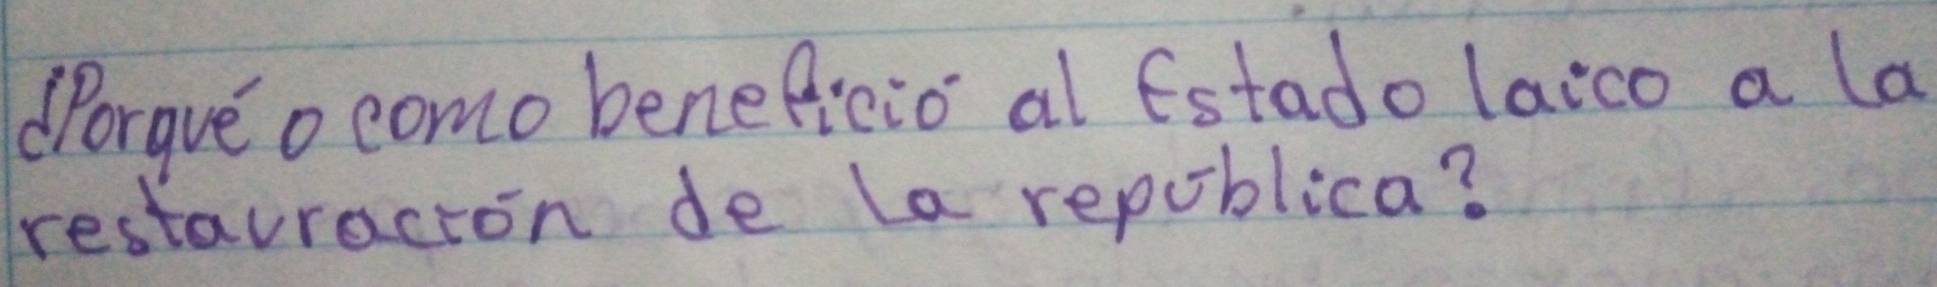 ¿Porqué o como benefició al Estado laico a la
restauración de la república?